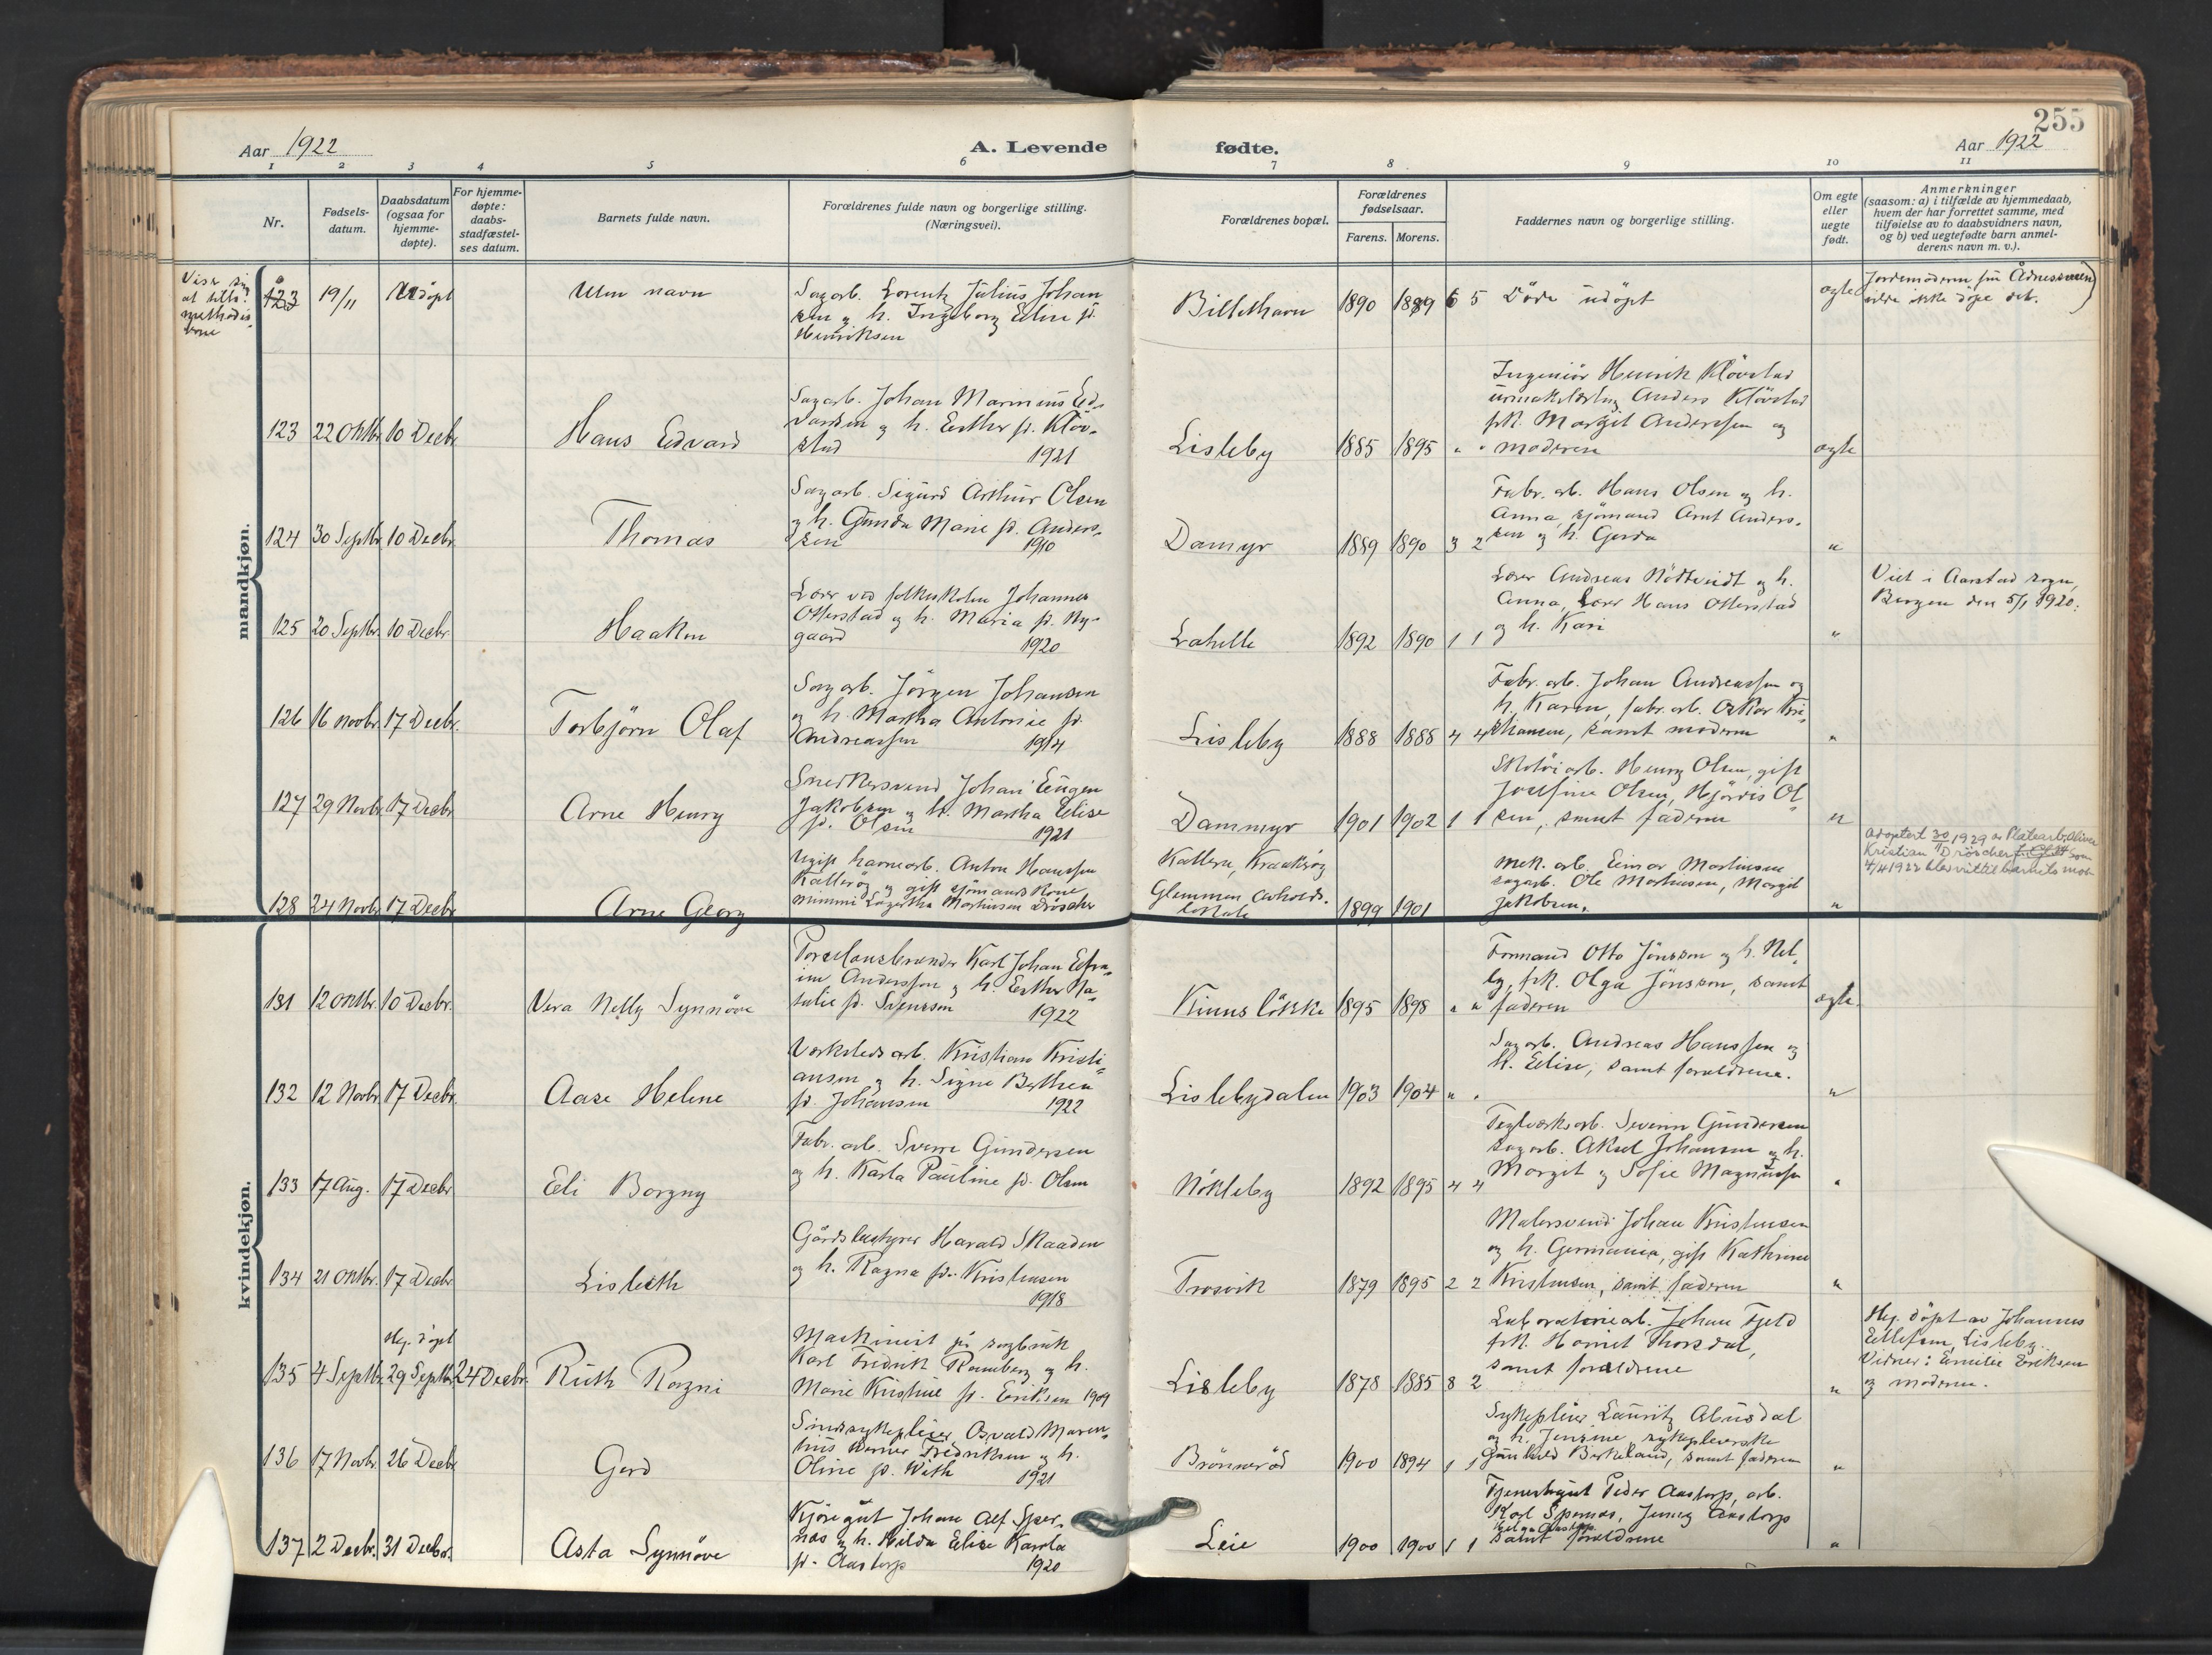 255
Aar 1922
A. Levende
fødte.
Aar 1922
1 2 3 4 5 6 7 8 9 10 11
Nr.
Fødsels-
datum.
Daabsdatum
(ogsaa for
hjemme-
døpte).
For hjemme-
døpte:
daabs-
stadfæstel-
ses datum.
Barnets fulde navn.
Forældrenes fulde navn og borgerlige stilling.
(Næringsvei).
Forældrenes bopæl.
Forældrenes
fødselsaar.
Farens. Morens.
Faddernes navn og borgerlige stilling.
Om egte
eller
uegte
født.
Anmerkninger
(saasom: a) i tilfælde av hjemmedaab,
hvem der har forrettet samme, med
tilføielse av to daabsvidners navn,
og b) ved uegtefødte barn anmel-
derens navn m. v.).
mandkjøn.
Viser sig
at tilh.
methodis-
terne
123 19/11 Udöpt Uten navn
Sagarb. Lorentz Julius Johan
sen og h. Ingeborg Eline f.
Henriksen
Billethavn 1890 1889 6 5 Döde udöpt
egte
Jordemoderen
vilde ikke döpe det.
123 22 Oktbr 10 Decbr Hans Edvard
Sagarb. Johan Marinius Ed-
vardsen og h. Esther f. Kløv-
stad 1921
Lisleby 1885 1895 " "
Ingeniör Henrik Klövstad
urmakerlærling Anders Klövstad
frk. Margit Anderssen og
moderen
egte
124 30 Septbr 10 Decbr Thomas
Sagarb. Sigurd Arthur Olsen
og h. Gunda Marie f. Anders-
sen 1910
Dammyr 1889 1890 3 2
Fabr. arb. Hans Olsen og h.
Anna, sjömand Arnt Anders-
sen og h. Gerda
"
125 20 Septbr. 10 Decbr. Haakon
Lærer ved folkeskolen Johannes
Otterstad og h. Maria f. Ny-
gaard 1920
Lahelle 1892 1890 1 1
Lærer Andreas Nödtveidt og h.
Anna, Lærer Hans Otterstad
og h. Kari
"
Viet i Aarstad sogn,
Bergen den 5/1 1920.
126 16 Novbr. 17 Decbr. Torbjörn Olaf
Sagarb. Jörgen Johansen
og h. Martha Antonie f.
Andreassen 1914
Lisleby 1888 1888 4 4
Fabr. arb. Johan Andreassen og
h. Karen, fabr. arb. Oskar Kri-
stiansen, samt moderen
"
127 29 Novbr. 17 Decbr Arne Henry
Snedkersvend Johan Eugen
Jakobsen og h. Martha Elise
f. Olsen 1921
Dammyr 1901 1902 1 1
Skotöiarb. Henry Olsen, gift
Josefine Olsen, Hjördis Ol
sen, samt faderen
"
128 24 Novbr 17 Decbr Arne Georg
Ugift havnearb. Anton Hanssen
Katteröy og gift sjömands kone
Mimmi Lagertha Martinsen Dröscher
Katterö, Kraakeröy
Glemmen avholds-
lokale
1899 1901
Mek. arb. Einar Martinsen
sagarb. Ole Martinsen, Margit
Jakobsen.
"
Adoptert 30/11 1929 av Platearb. Oliver
Kristian Dröscher som
4/4 1922 blev viet til barnets mor
kvindekjøn.
131 12 Oktbr. 10 Decbr. Vera Nelly Synnöve
Porselænsbrænder Karl Johan Efra-
im Anderssen og h. Esther Na-
talie f. Svensson 1922
Kinnslökke 1895 1898 " "
Formand Otto Jönsson og h. Nel-
ly, frk. Olga Jönsson, samt
faderen
egte
132 12 Novbr. 17 Decbr. Aase Helene
Verkstedsarb. Kristian Kristi-
ansen og h. Signe Berthea
f. Johansen 1922
Lislebydalen 1903 1904 " "
Sagarb. Andreas Hanssen og
h. Elise, samt forældrene.
"
133 17 Aug. 17 Decbr Eli Borgny
Fabr. arb. Sverre Gundersen
og h. Karla Pauline f. Olsen
Nökleby 1892 1895 4 4
Teglverksarb. Severin Gundersen
sagarb. Aksel Johansen og h.
Margit og Sofie Magnussen
"
134 21 Oktbr. 17 Decbr Lisbeth
Gårdsbestyrer Harald Skaaden
og h. Ragna f. Kristensen
1918
Trosvik 1879 1895 2 2
Malersvend Johan Kristensen
og h. Germania, gift Kathrine
Kristensen, samt faderen
"
Hj. döpt
135 4 Septbr. 29 Septbr. 24 Decbr. Ruth Ragni
Maskinist på sagbruk
Karl Fredrik Ramberg og h.
Marie Kristine f. Eriksen 1909
Lisleby 1878 1885 8 2
Laboratoriearb. Johan Fjeld
frk. Harriet Thorsdal,
samt forældrene
"
Hj. döpt av Johannes
Ellefsen, Lisleby.
Vidner: Emilie Eriksen
og moderen.
136 17 Novbr. 26 Decbr Gerd
Sindssykepleier Osvald Maren-
tius Werner Fredriksen og h.
Oline f. With 1921
Brönneröd 1900 1894 1 1
Sykepleier Lauritz Abusdal
og h. Jensine, sykepleierske
Gunhild Birkeland, samt faderen
"
137 2 Decbr. 31 Decbr. Asta Synnöve
Kjöregut Johan Alf Sper-
nes og h. Hilda Elise Karola
f. Aastorp 1920
Leie 1900 1900 1 1
Tjenestegut Peder Aastorp, arb.
Karl Spernes, Jenny Aastorp
Helga Aastorp
samt forældrene
"